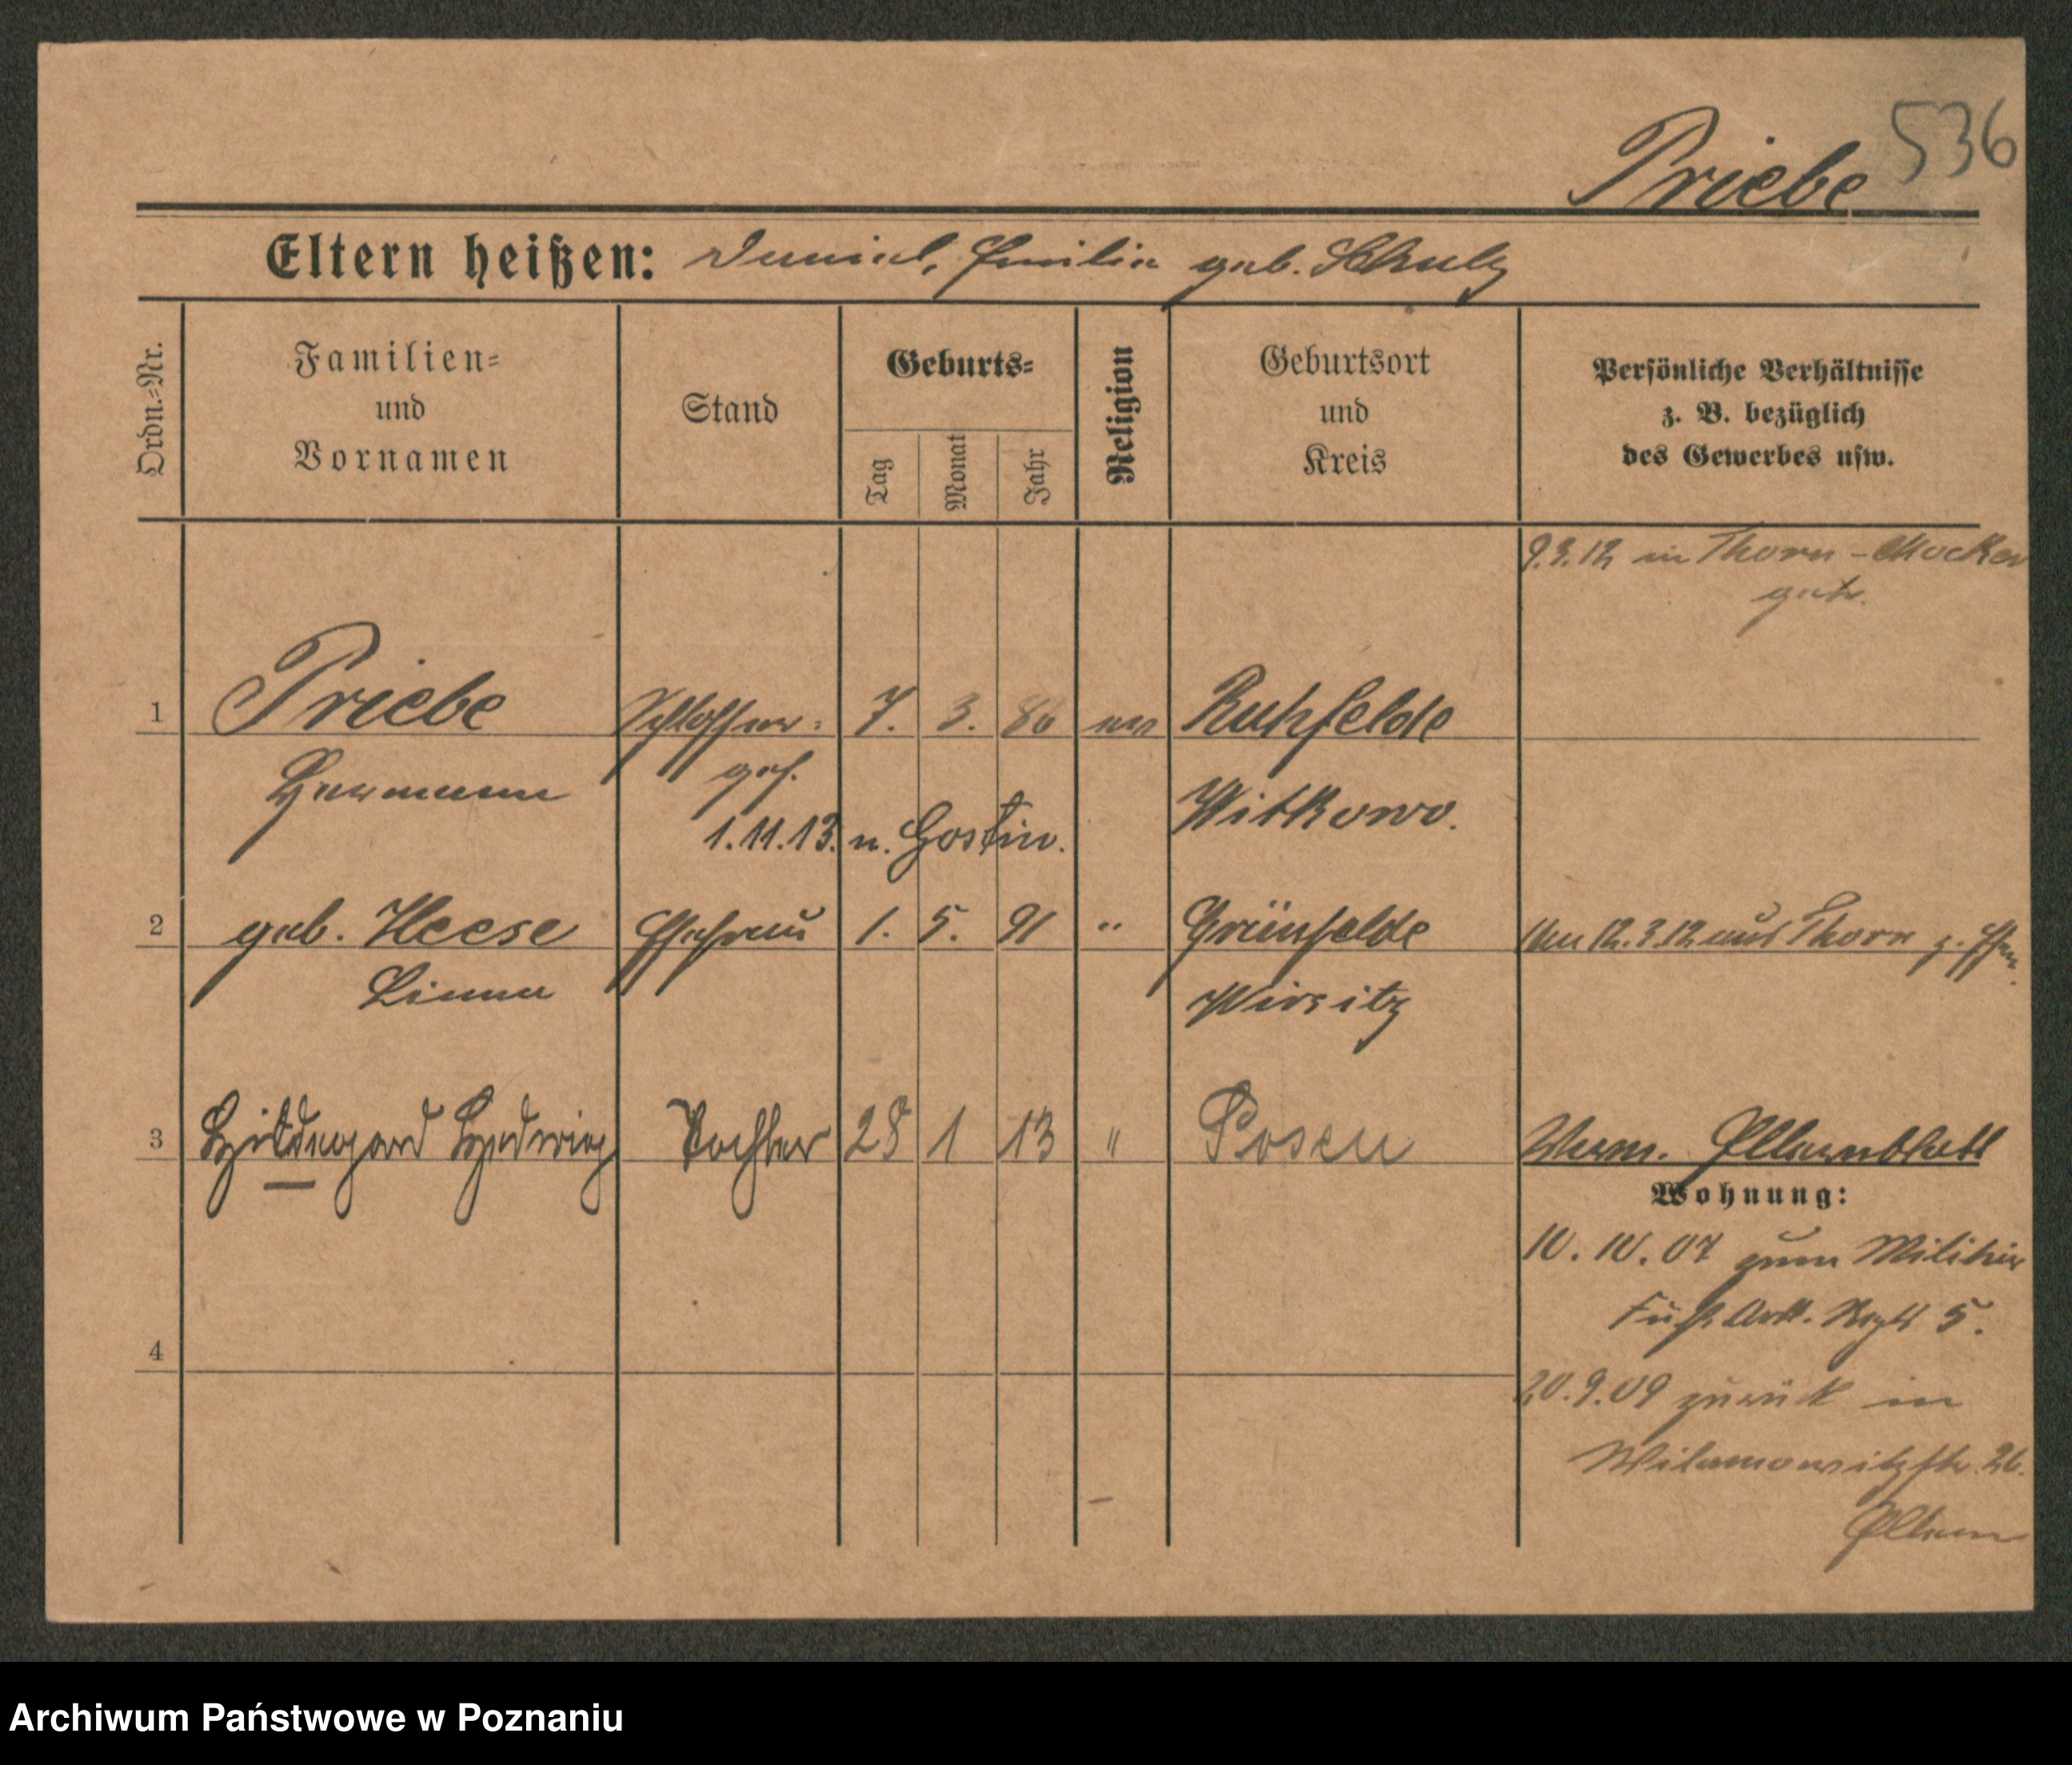 536
Priebe
Eltern heißen: Daniel, Emilie geb. Schulz
Ordn.=Nr.
Familien=
und
Vornamen
Stand
Geburts=
Tag
Monat
Jahr
Religion
Geburtsort
und
Kreis
Persönliche Verhältnisse
z. B. bezüglich
des Gewerbes usw.
9.3.12 in Thorn-Mocker
getr.
1 Priebe Schlosser= 7. 3. 86 ev Ruhfelde
Hermann ges. Witkowo.
1.11.13. n. Gostin.
2 geb. Heese Ehefrau 1. 5. 91 " Grünfelde Am 12.3.12 aus Thorn z. Ehem.
Wirsitz
3 Hildegard Hedwig Tochter 28 1 13 " Posen Verm. Elternblatt
Wohnung:
10. 10. 07 zum Militär
Fußart. Regt 5.
4
20.9.09 zurück in
Wilamowitzstr. 26.
Eltern
Archiwum Państwowe w Poznaniu